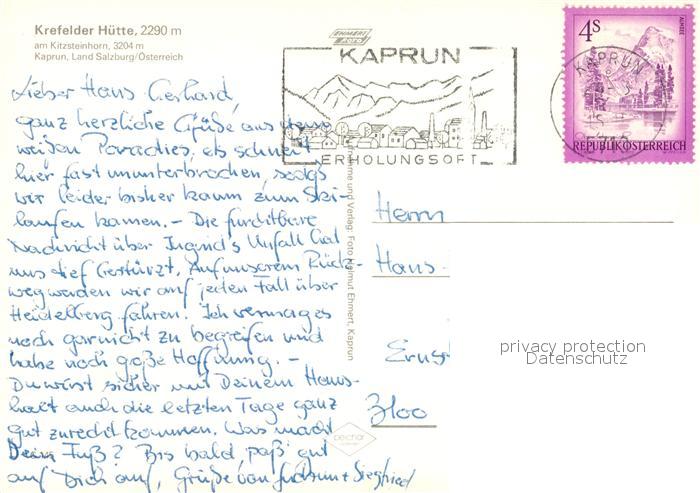 Krefelder Hütte, 2290 m
am Kitzsteinhorn, 3204 m
Kaprun, Land Salzburg/Österreich
Lieber Hans Gerhard,
ganz herzliche Grüße aus dem
weißen Paradies, es schneit
hier fast ununterbrochen, sodaß
wir leider bisher kaum zum Ski-
laufen kamen. – Die furchtbare
Nachricht über Unfall hat
uns tief bestürzt. Auf unserem Rück-
weg werden wir auf jeden Fall über
Heidelberg fahren. Ich vermag es
noch garnicht zu begreifen und
habe noch große Hoffnung. –
Du wirst sicher mit Deinem Haus-
halt auch die letzten Tage ganz
gut zurecht kommen. Was macht
Dein Fuß? Bis bald, paß' gut
auf Dich auf, Grüße von Gudrun + Siegfried
EHMERT
FOTO
KAPRUN
ERHOLUNGSORT
4S
ALMSEE
REPUBLIK ÖSTERREICH
KAPRUN
Aufnahme und Verlag: Foto Helmut Ehmert, Kaprun
Herrn
Hans-
Ernst
3100
privacy protection
Datenschutz